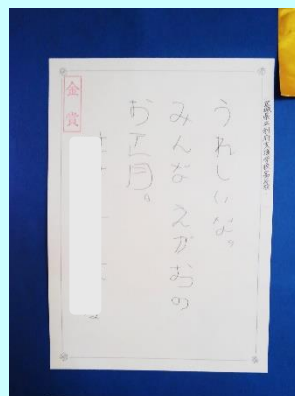 うれしいな。
みんなえがおの
お正月。
金賞